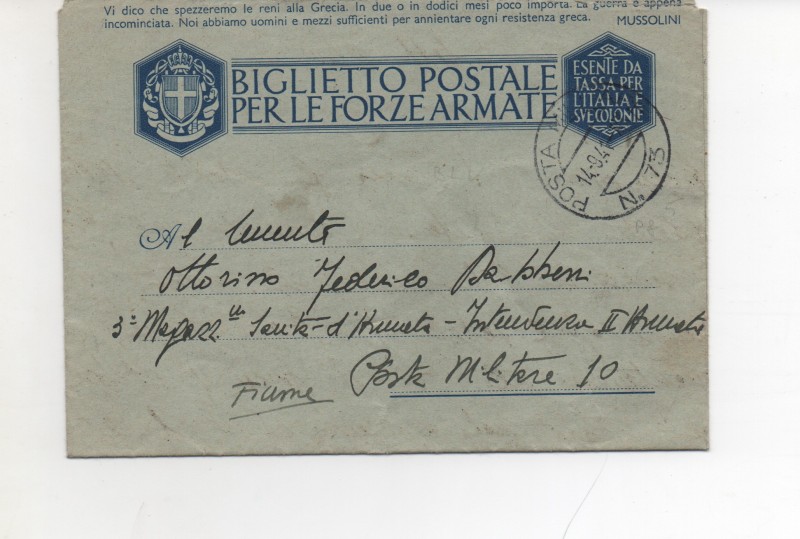 Vi dico che spezzeremo le reni alla Grecia. In due o in dodici mesi poco importa. La guerra è appena
incominciata. Noi abbiamo uomini e mezzi sufficienti per annientare ogni resistenza greca. MUSSOLINI
BIGLIETTO POSTALE
PER LE FORZE ARMATE
ESENTE DA
TASSA PER
L'ITALIA E
SVE COLONIE
POSTA
14.9.41
N. 73
Al Tenente
Ottorino Federico
3° Magazz Sanità d'Armata - Intendenza II Armata
Posta Militare 10
Fiume